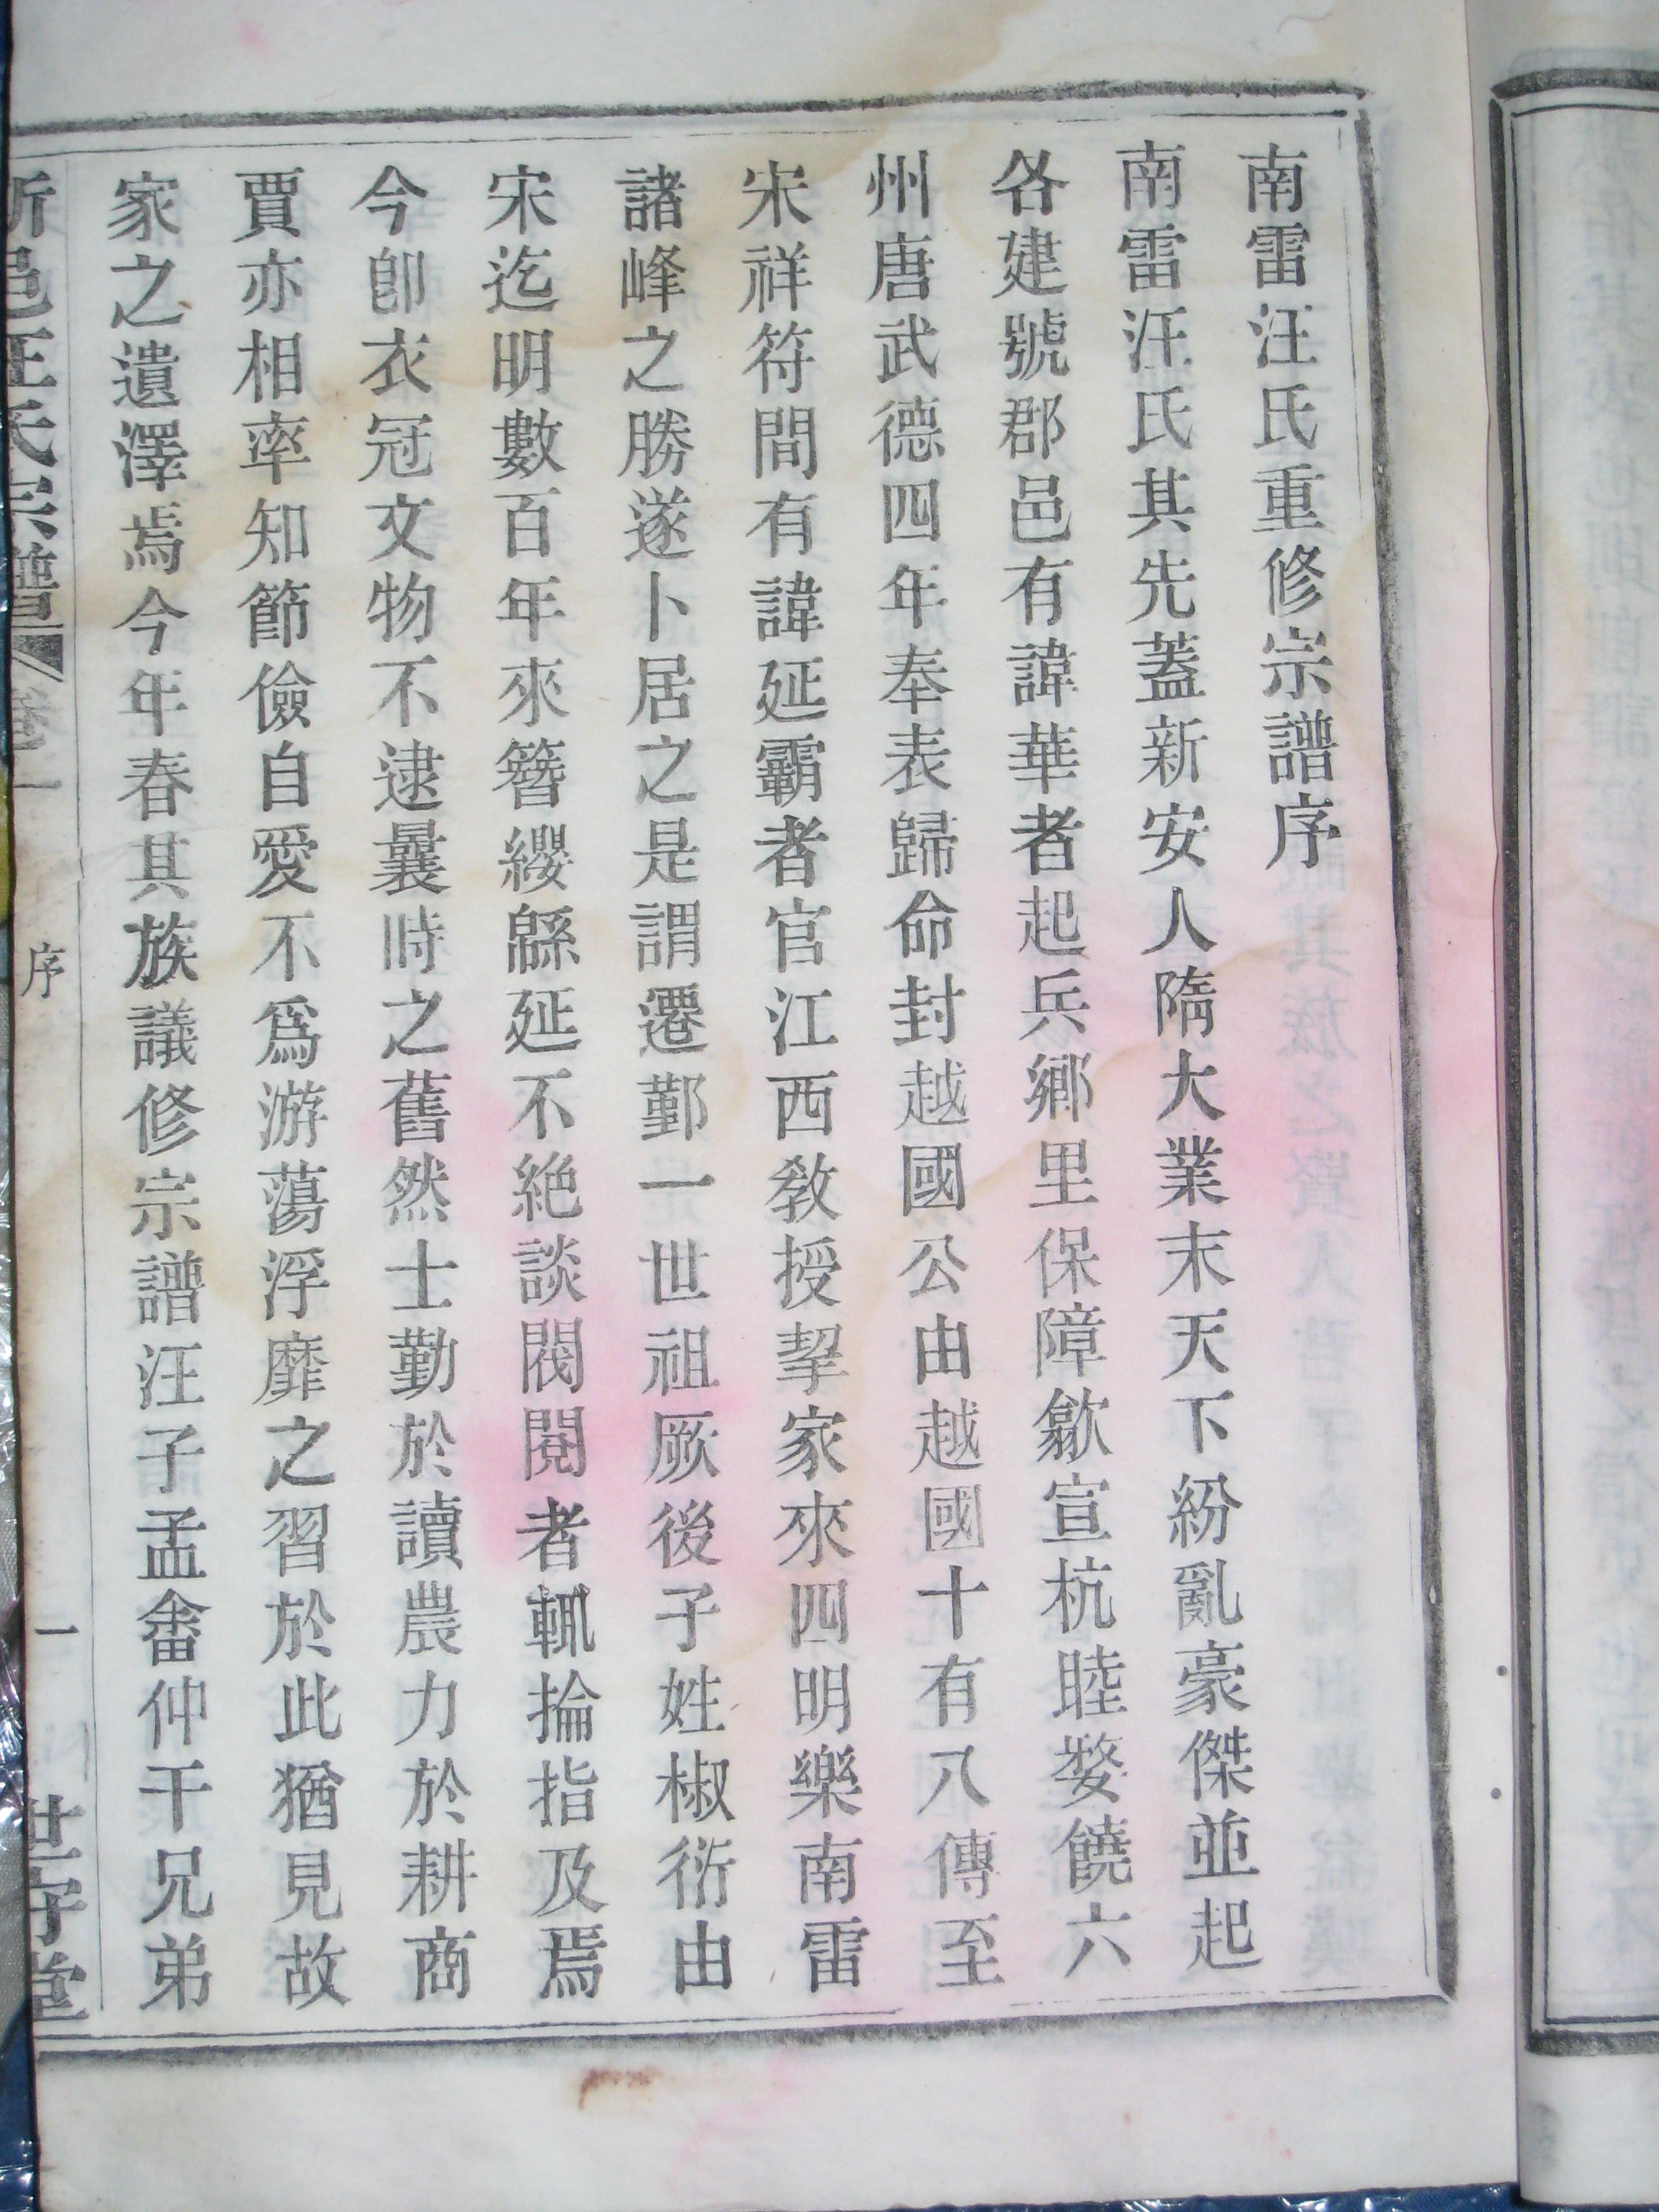 南雷汪氏重修宗譜序
南雷汪氏其先蓋新安人隋大業末天下紛亂豪傑並起
各建號郡邑有諱華者起兵鄉里保障歙宣杭睦婺饒六
州唐武德四年奉表歸命封越國公由越國十有八傳至
宋祥符間有諱延霸者官江西教授挈家來四明樂南雷
諸峰之勝遂卜居之是謂遷鄞一世祖厥後子姓椒衍由
宋迄明數百年來簪纓緜延不絶談閥閱者輒掄指及焉
今卽衣冠文物不逮曩時之舊然士勤於讀農力於耕商
賈亦相率知節儉自愛不爲游蕩浮靡之習於此猶見故
家之遺澤焉今年春其族議修宗譜汪子孟畬仲干兄弟
邑汪氏宗譜
序
一